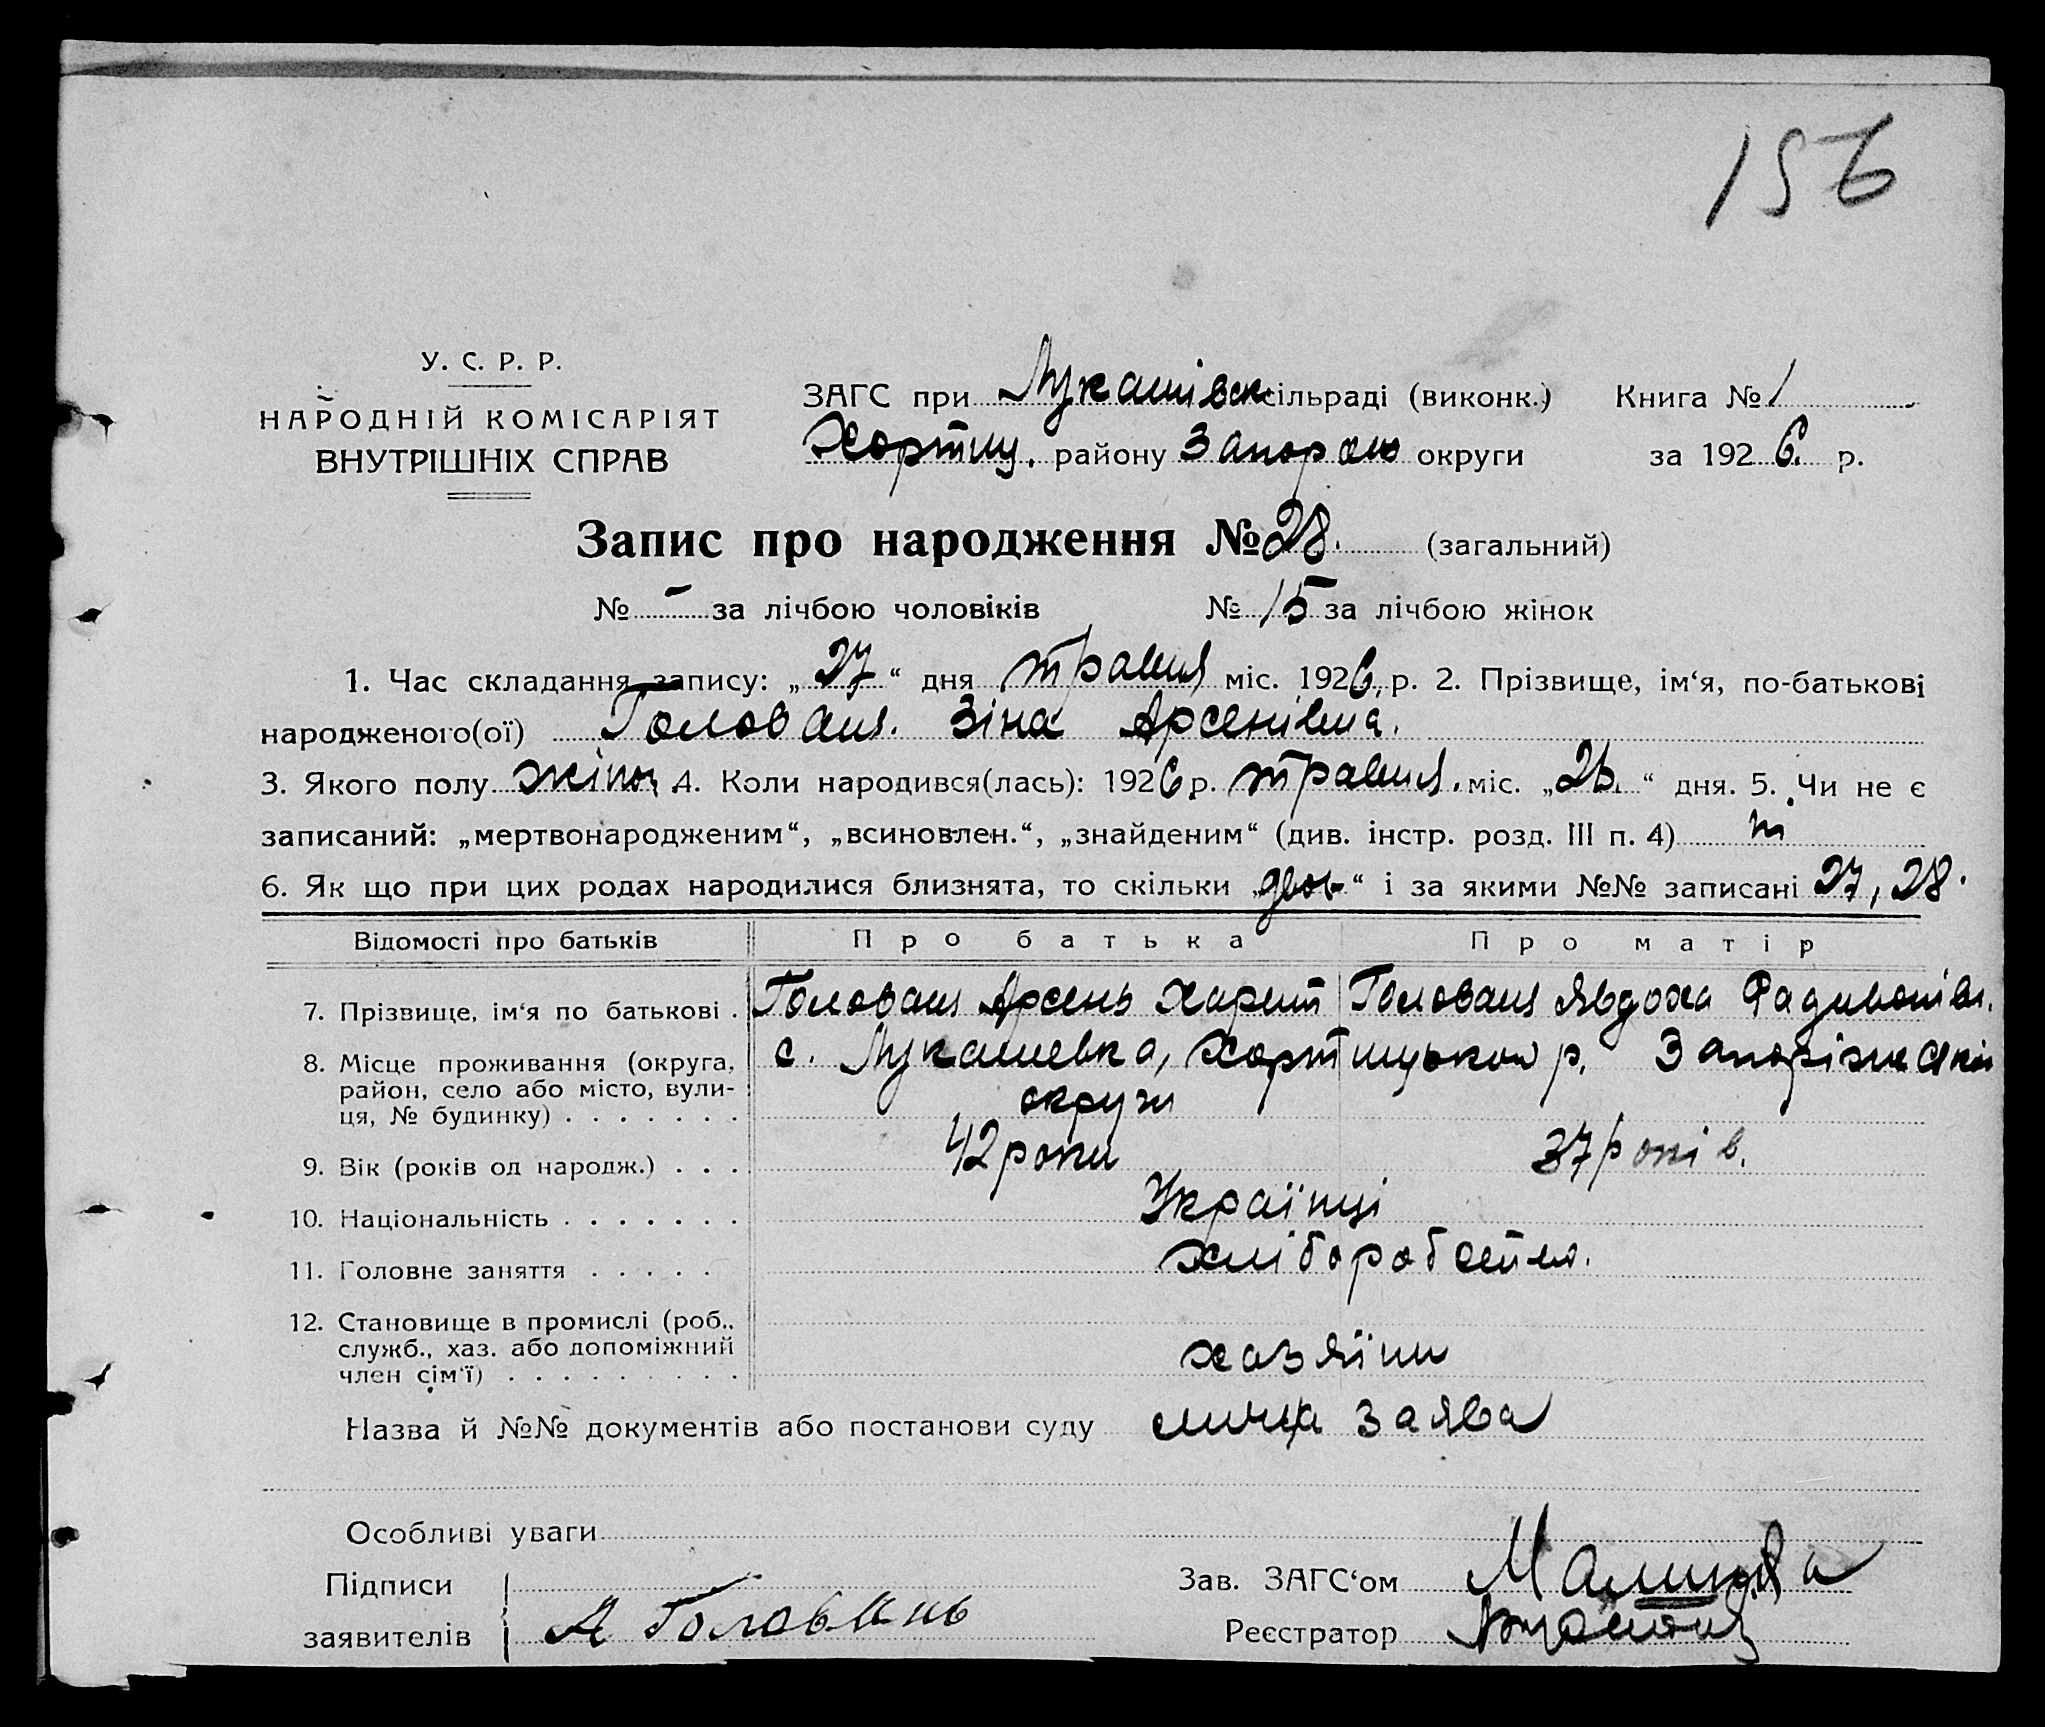 156
У. С. Р. Р.
НАРОДНІЙ КОМІСАРІЯТ
ВНУТРІШНІХ СПРАВ
ЗАГС при Лукашівск сільраді (виконк.) Книга № 1
Хортиц. району Запорож округи за 1926 р.
Запис про народження № 28. (загальний)
№ – за лічбою чоловіків № 15 за лічбою жінок
1. Час складання запису: „27“ дня травня міс. 1926 р. 2. Прізвище, ім‘я, по-батькові
народженого(ої) Головань. Зіна Арсенівна.
3. Якого полу жіноч 4. Коли народився(лась): 1926 р. травня. міс. „26.“ дня. 5. Чи не є
записаний: „мертвонародженим“, „всиновлен.“, „знайденим“ (див. інстр. розд. III п. 4) ні
6. Як що при цих родах народилися близнята, то скільки „двое“ і за якими №№ записані 27, 28.
Відомості про батьків Про батька Про матір
7. Прізвище, ім‘я по батькові . Головань Арсень Харит Головань Явдоха
8. Місце проживання (округа, с. Лукашевка, Хортицького р. Запоріжської
район, село або місто, вули- округи
ця, № будинку) . . . . . . .
9. Вік (років од народж.) . . . 42 роки 37 років.
10. Національність . . . . . . . Українці
11. Головне заняття . . . . . хліборобство.
12. Становище в промислі (роб.,
служб., хаз. або допоміжний хазяїни
член сім‘ї) . . . . . . . . .
Назва й №№ документів або постанови суду заява
Особливі уваги
Підписи Зав. ЗАГС‘ом
заявителів А Головань Реєстратор